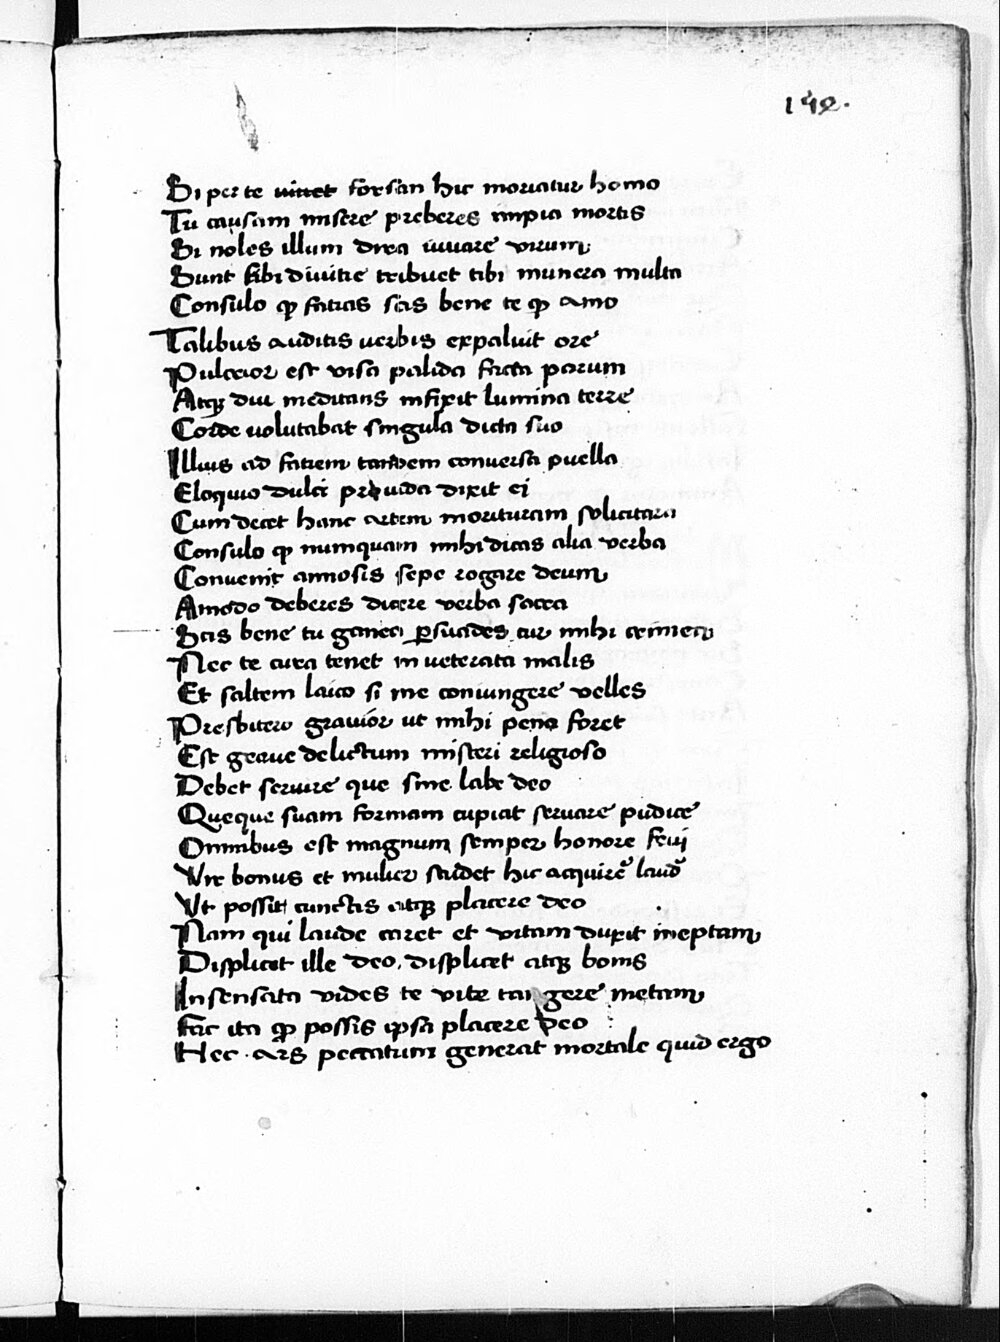 152.
Si per te vivet forsan hic moriatur homo
Tu causam misere preberes impia mortis
Si noles illum dira iuvare virum
Sunt sibi divitie tribuet tibi munera multa
Consulo qp facias scis bene te qp amo
Talibus auditis verbis expaluit ore
Pulcrior est visa palida facta parum
Atqz diu meditans infixit lumina terre
Corde volutabat singula dicta suo
Illius ad faciem tandem conversa puella
Eloquio dulci provida dixit ei
Cum decet hanc artem morituram solicitare
Consulo qp numquam mihi dicas alia verba
Convenit annosis sepe rogare deum
Amodo deberes dicere verba sacra
Scis bene tu ganea psuades cur mihi crimen
Nec te cura tenet in veterata malis
Et saltem laico si me coniungere velles
Presbitero gravior ut mihi pena foret
Est grave delictum misceri religioso
Debet servire que sine labe deo
Queque suam formam cupiat servare pudice
Omnibus est magnum semper honore frui
Vir bonus et mulier studet hic acquirē laudē
Ut possit cunctis atqz placere deo
Nam qui laude caret et vitam duxit ineptam
Displicet ille deo, displicet atqz bonis
Insensata vides te vite tangere metam
Fac ita qp possis ipsa placere deo
Hec ars peccatum generat mortale quid ergo